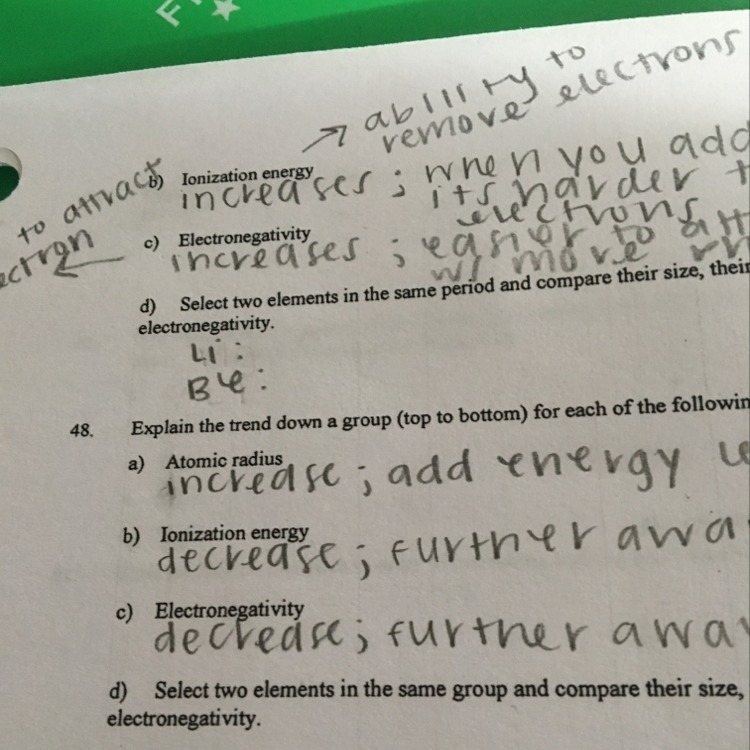 F
→ ability to
remove electrons
b) Ionization energy
increases ; when you add
its harder
electrons
to attract
c) Electronegativity
increases ; easier to
w/ more
d) Select two elements in the same period and compare their size, their
electronegativity.
Li :
Be :
48. Explain the trend down a group (top to bottom) for each of the
a) Atomic radius
increase ; add energy
b) Ionization energy
decrease ; further
c) Electronegativity
decrease ; further
d) Select two elements in the same group and compare their size,
electronegativity.